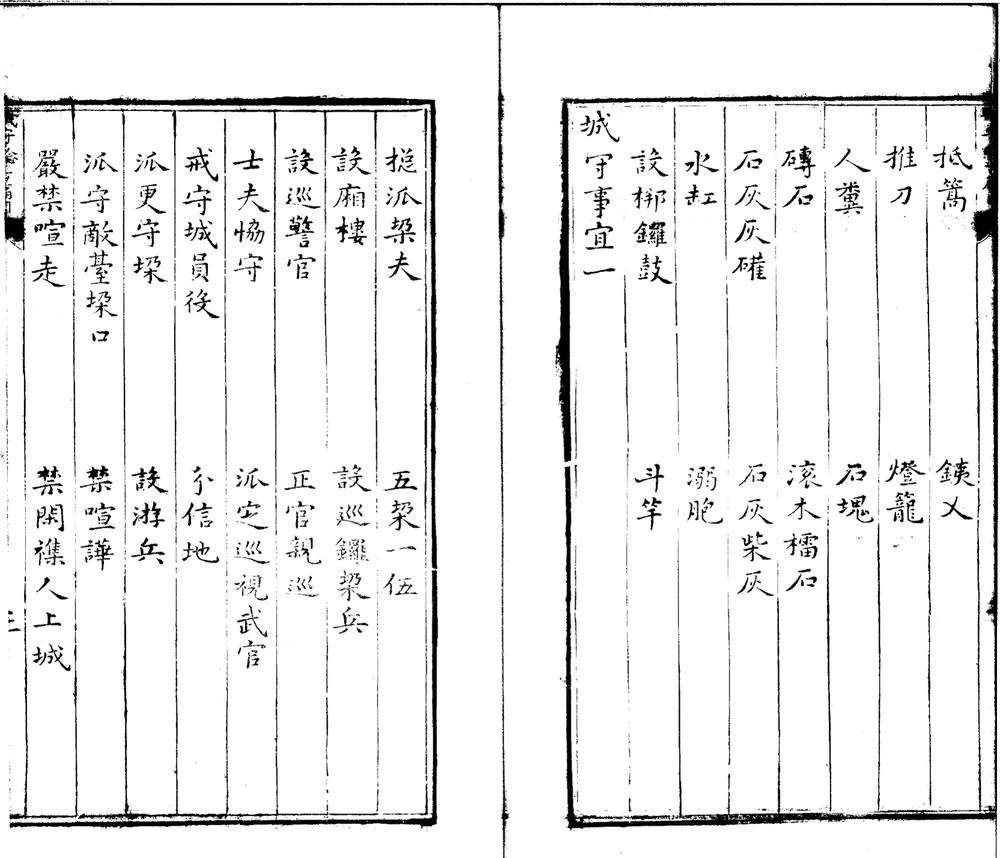 抵篙 銕乂
推刀 燈籠
人糞 石塊
磚石 滚木檑石
石灰灰礶 石灰柴灰
水缸 溺胞
設梆鑼鼓 斗竿
城守事宜一
摠派垜夫 五垜一伍
設廂樓 設巡鑼垜兵
設巡警官 正官親巡
士夫恊守 派定巡視武官
戒守城員役 分信地
派更守垜 設游兵
派守敵臺垜口 禁喧譁
嚴禁喧走 禁閑襍人上城